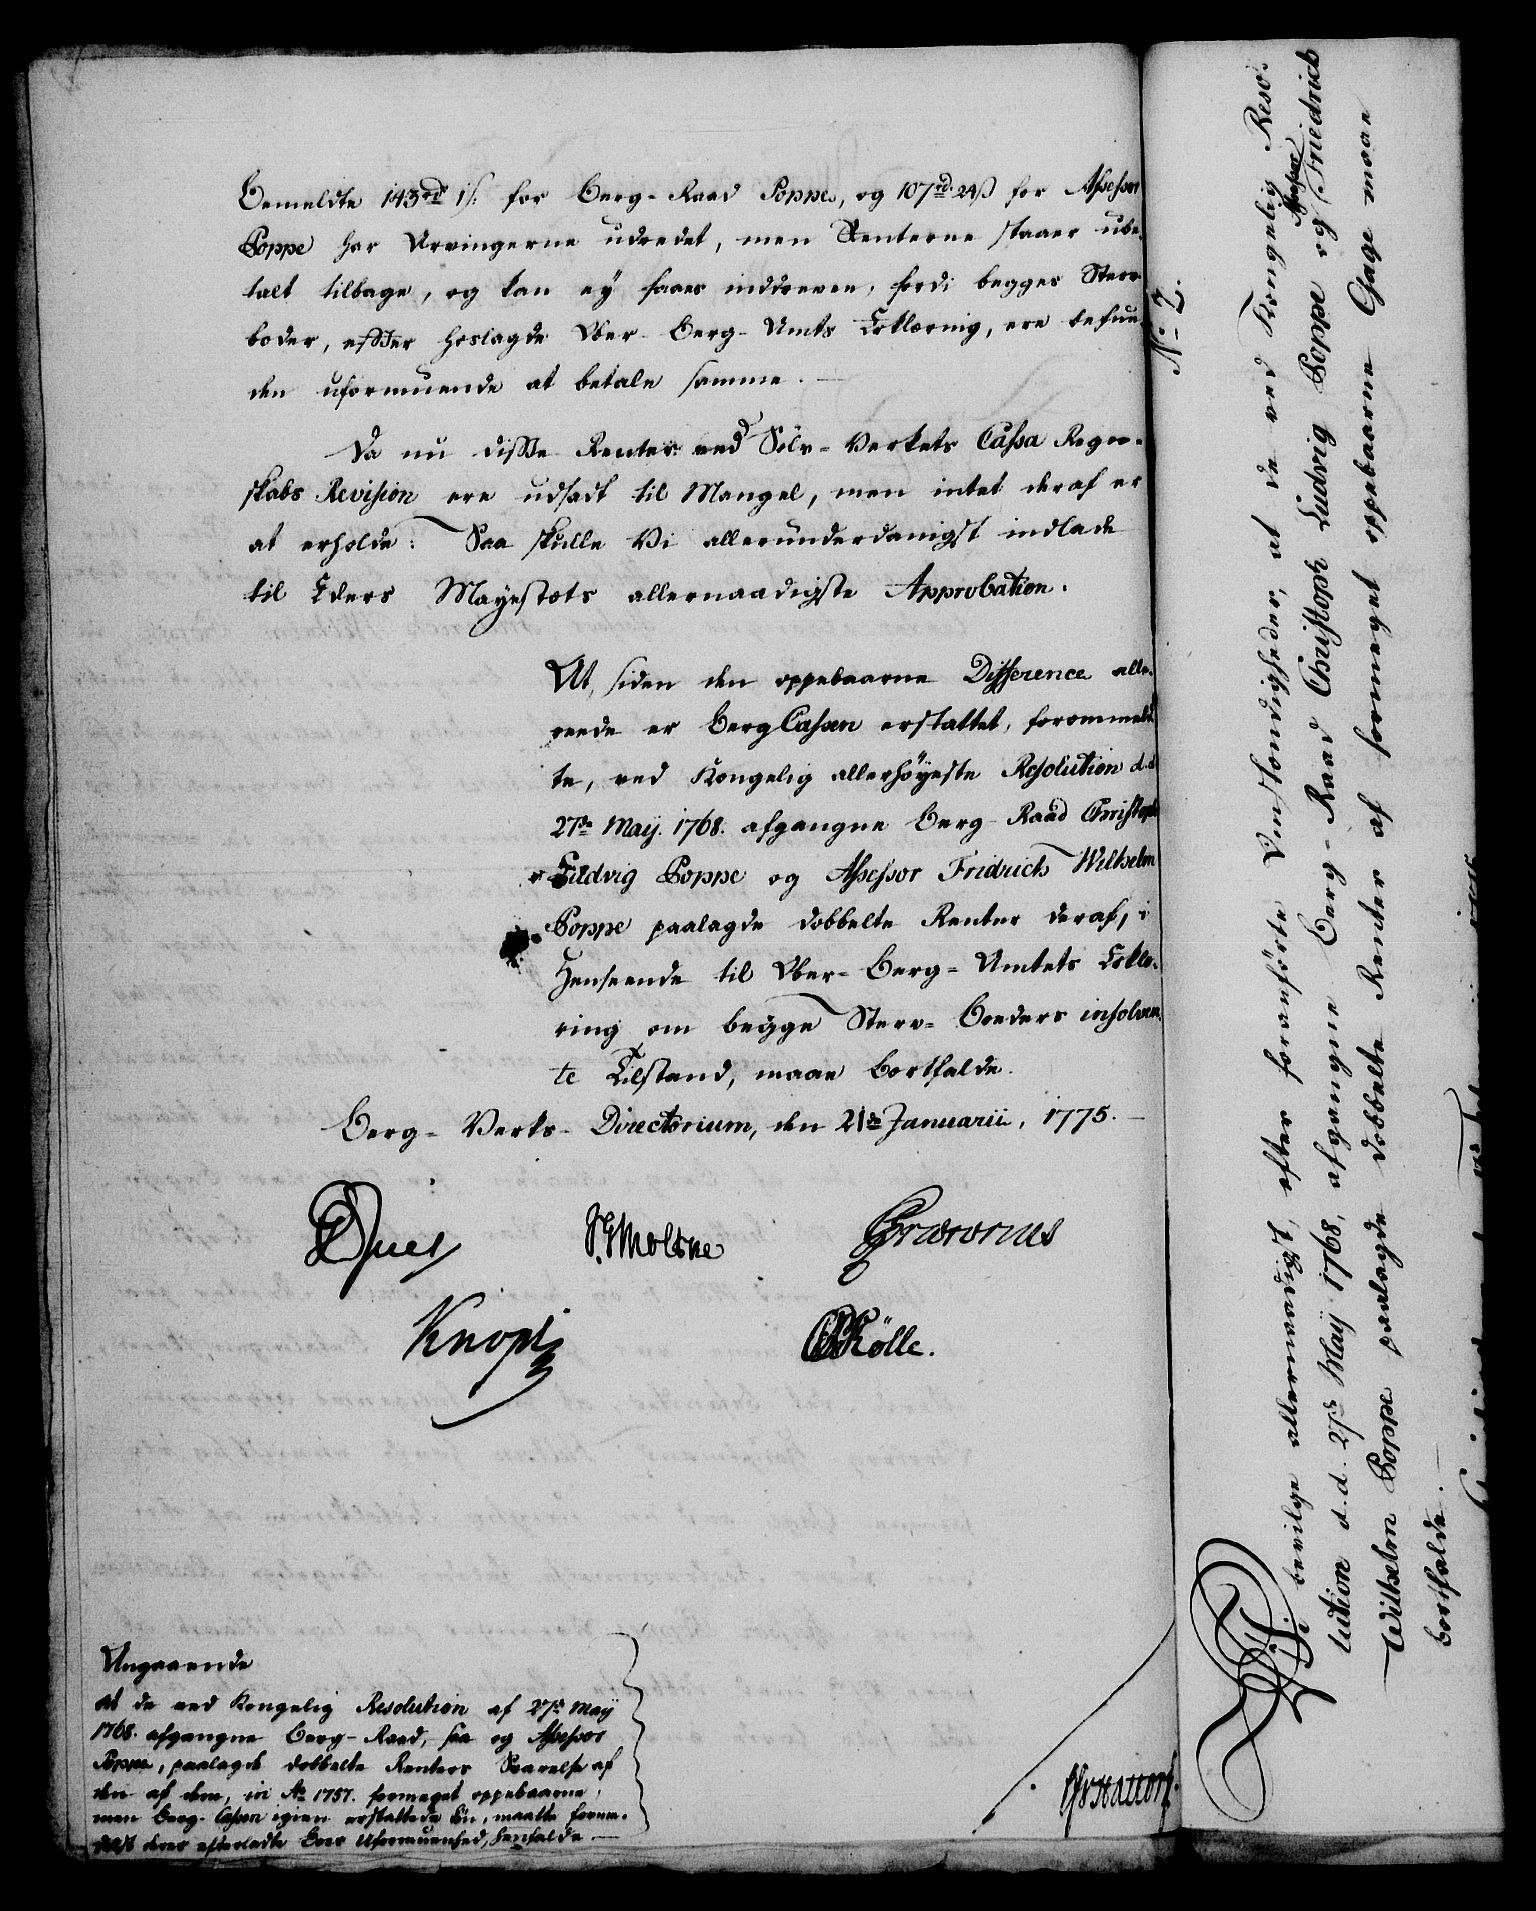 bemeldte 143 rd. 1 ß. for Berg-Raad Poppes, og 107 rd. 24 ß for Assessor
Poppe har Arvingerne udredet, men Renterne staaer ube-
talt tilbage, og kan ey faaes inddreven, fordi begges Sterv-
boder, efter hoslagde Ober-Berg-Amts Erklærnig, ere befun-
den uformuende at betale samme.
Da nu disse Renter ved Sølv-Verkets Cassa Regn-
skabs Revision ere udsadt til Mangel, men intet deraf er
at erholde: Saa skulle Vi allerunderdanigst indlade
til Eders Mayestæts allernaadigste Approbation.
At, siden den oppebaarne Difference alle-
reede er Berg Cassen erstattet, forommeld-
te, ved Kongelig allerhöyeste Resolution d. d.
27de Maÿ. 1768. afgangne Berg-Raad Christoph
Ludvig Poppe og Assessor Fridrich Wilhelm
Poppe paalagde dobbelte Renter deraf, i
Henseende til Ober-Berg-Amtets Erklæ-
ring om begge Sterv-Boeders insolven-
te Tilstand, maae bortfalde.
Berg-Verks-Directorium, den 21de Januarii, 1775.
Knopf
Rölle.
Angaaende
at de ved Kongelig Resolution af 27de Maÿ
1768. afgangne Berg-Raad, saa og Assessor
Poppe, paalagde dobbelte Renters Svarelse af
den af dem, in Ao 1757. formeget oppebaarne,
men Berg-Cassen igien erstattede Lön, maatte formee-
delst deres efterladte Boes Uformuenhed, henfalde.
No 7.
Vi bevilge allernaadigst, efter foranførte Omstændigheder, at de ved Kongelig Reso-
lution d. d. 27de Maÿ 1768, afgangne Berg-Raad Christoph Ludvig Poppe og Assessor Friedrich
Wilhelm Poppe paalagde dobbelte Renter af formeget oppebaarne Gage maae
bortfalde.